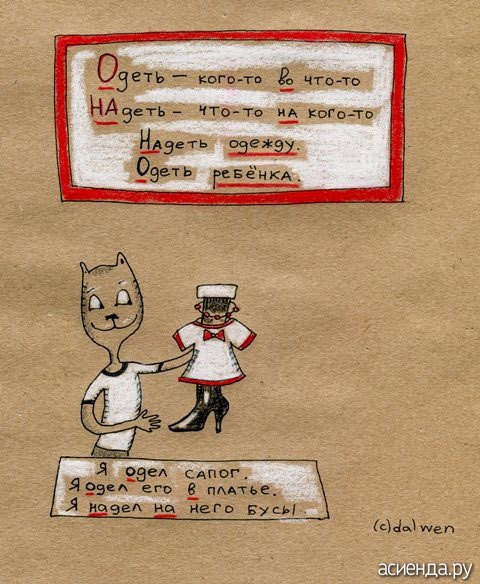 Одеть – кого-то во что-то
НАдеть – что-то на кого-то
НАдеть одежду.
Одеть ребёнка.
Я одел сапог.
Я одел его в платье.
Я надел на него бусы.
(c)dalwen
асиенда.ру